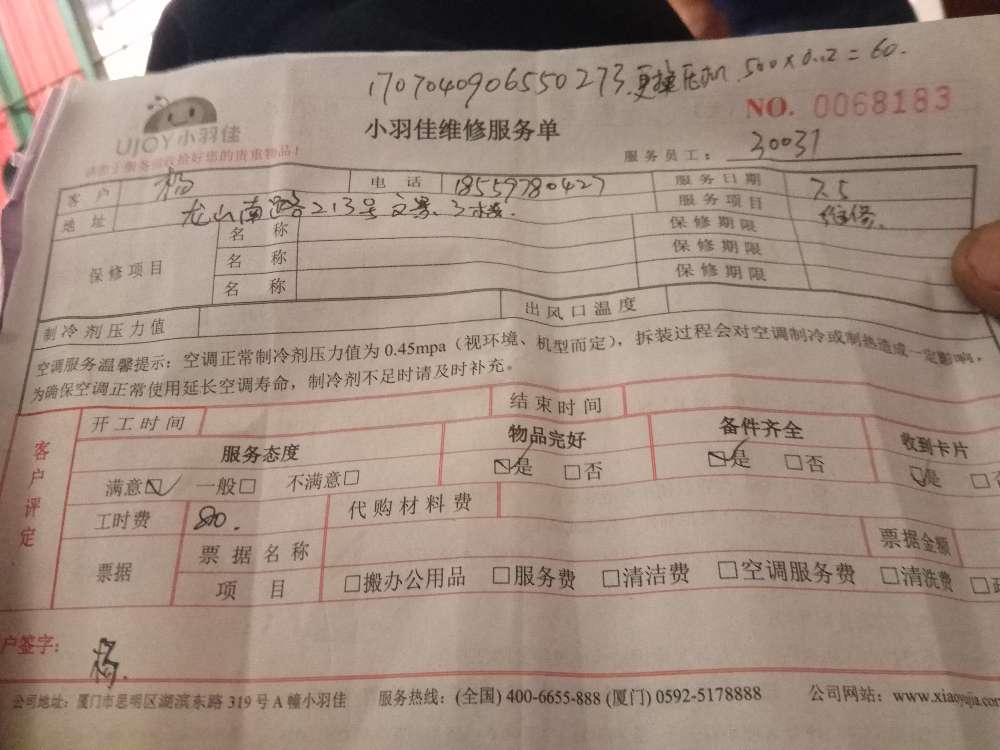 1707040906550273 更换压机 500×0.12=60.
NO. 0068183
UJOY小羽佳
小羽佳维修服务单
服务员工: 30031
的贵重物品!
客户 杨 电话 18559780427 服务日期 7.5
地址 龙山南路213号文景、3楼. 服务项目 维修.
保修项目 名称 保修期限
名称 保修期限
名称 保修期限
制冷剂压力值 出风口温度
空调服务温馨提示:空调正常制冷剂压力值为0.45mpa(视环境、机型而定),拆装过程会对空调制冷或制热造成一定影响,
为确保空调正常使用延长空调寿命,制冷剂不足时请及时补充。
客户评定
开工时间 结束时间
服务态度 物品完好 备件齐全 收到卡片
满意☑ 一般□ 不满意□ ☑是 □否 ☑是 □否 ☑是 □否
工时费 代购材料费
票据 票据名称 票据金额
项目 □搬办公用品 □服务费 □清洁费 □空调服务费 □清洗费 □
户签字:
杨.
公司地址:厦门市思明区湖滨东路319号A幢小羽佳 服务热线:(全国) 400-6655-888 (厦门) 0592-5178888 公司网站:www.xiaoyujia.com